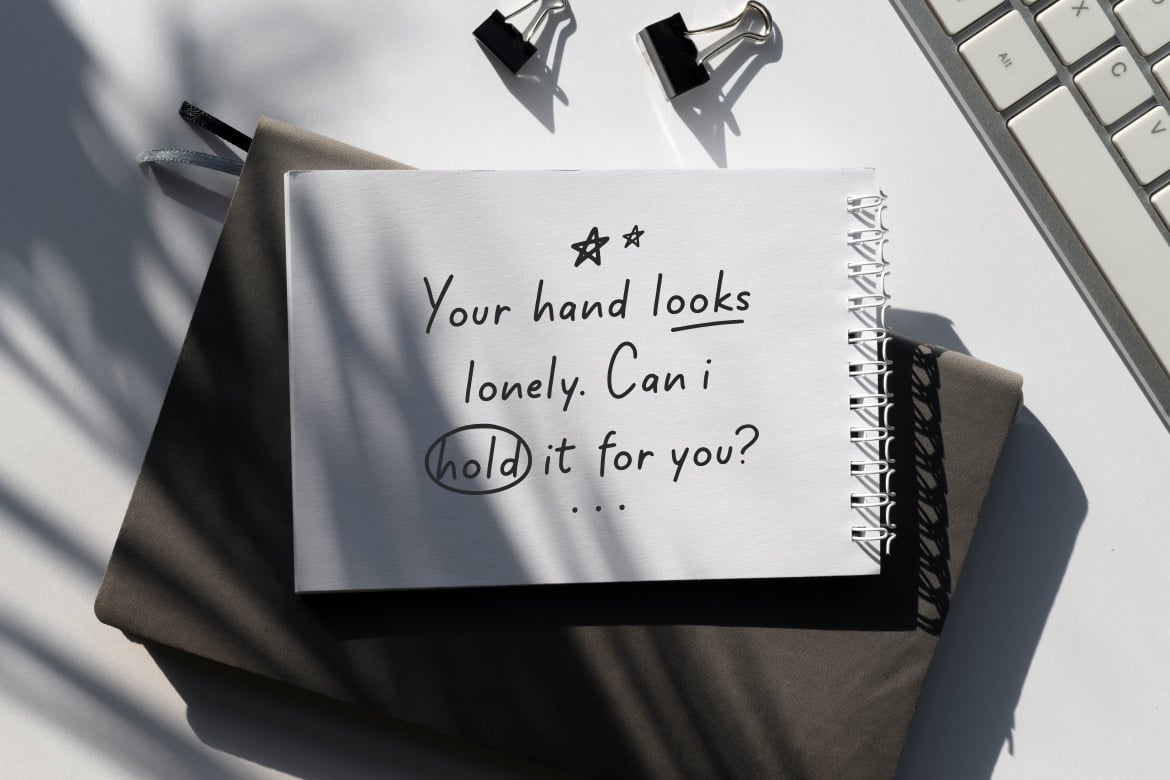 Your hand looks
lonely. Can i
hold it for you?
...
Alt
X
C
V